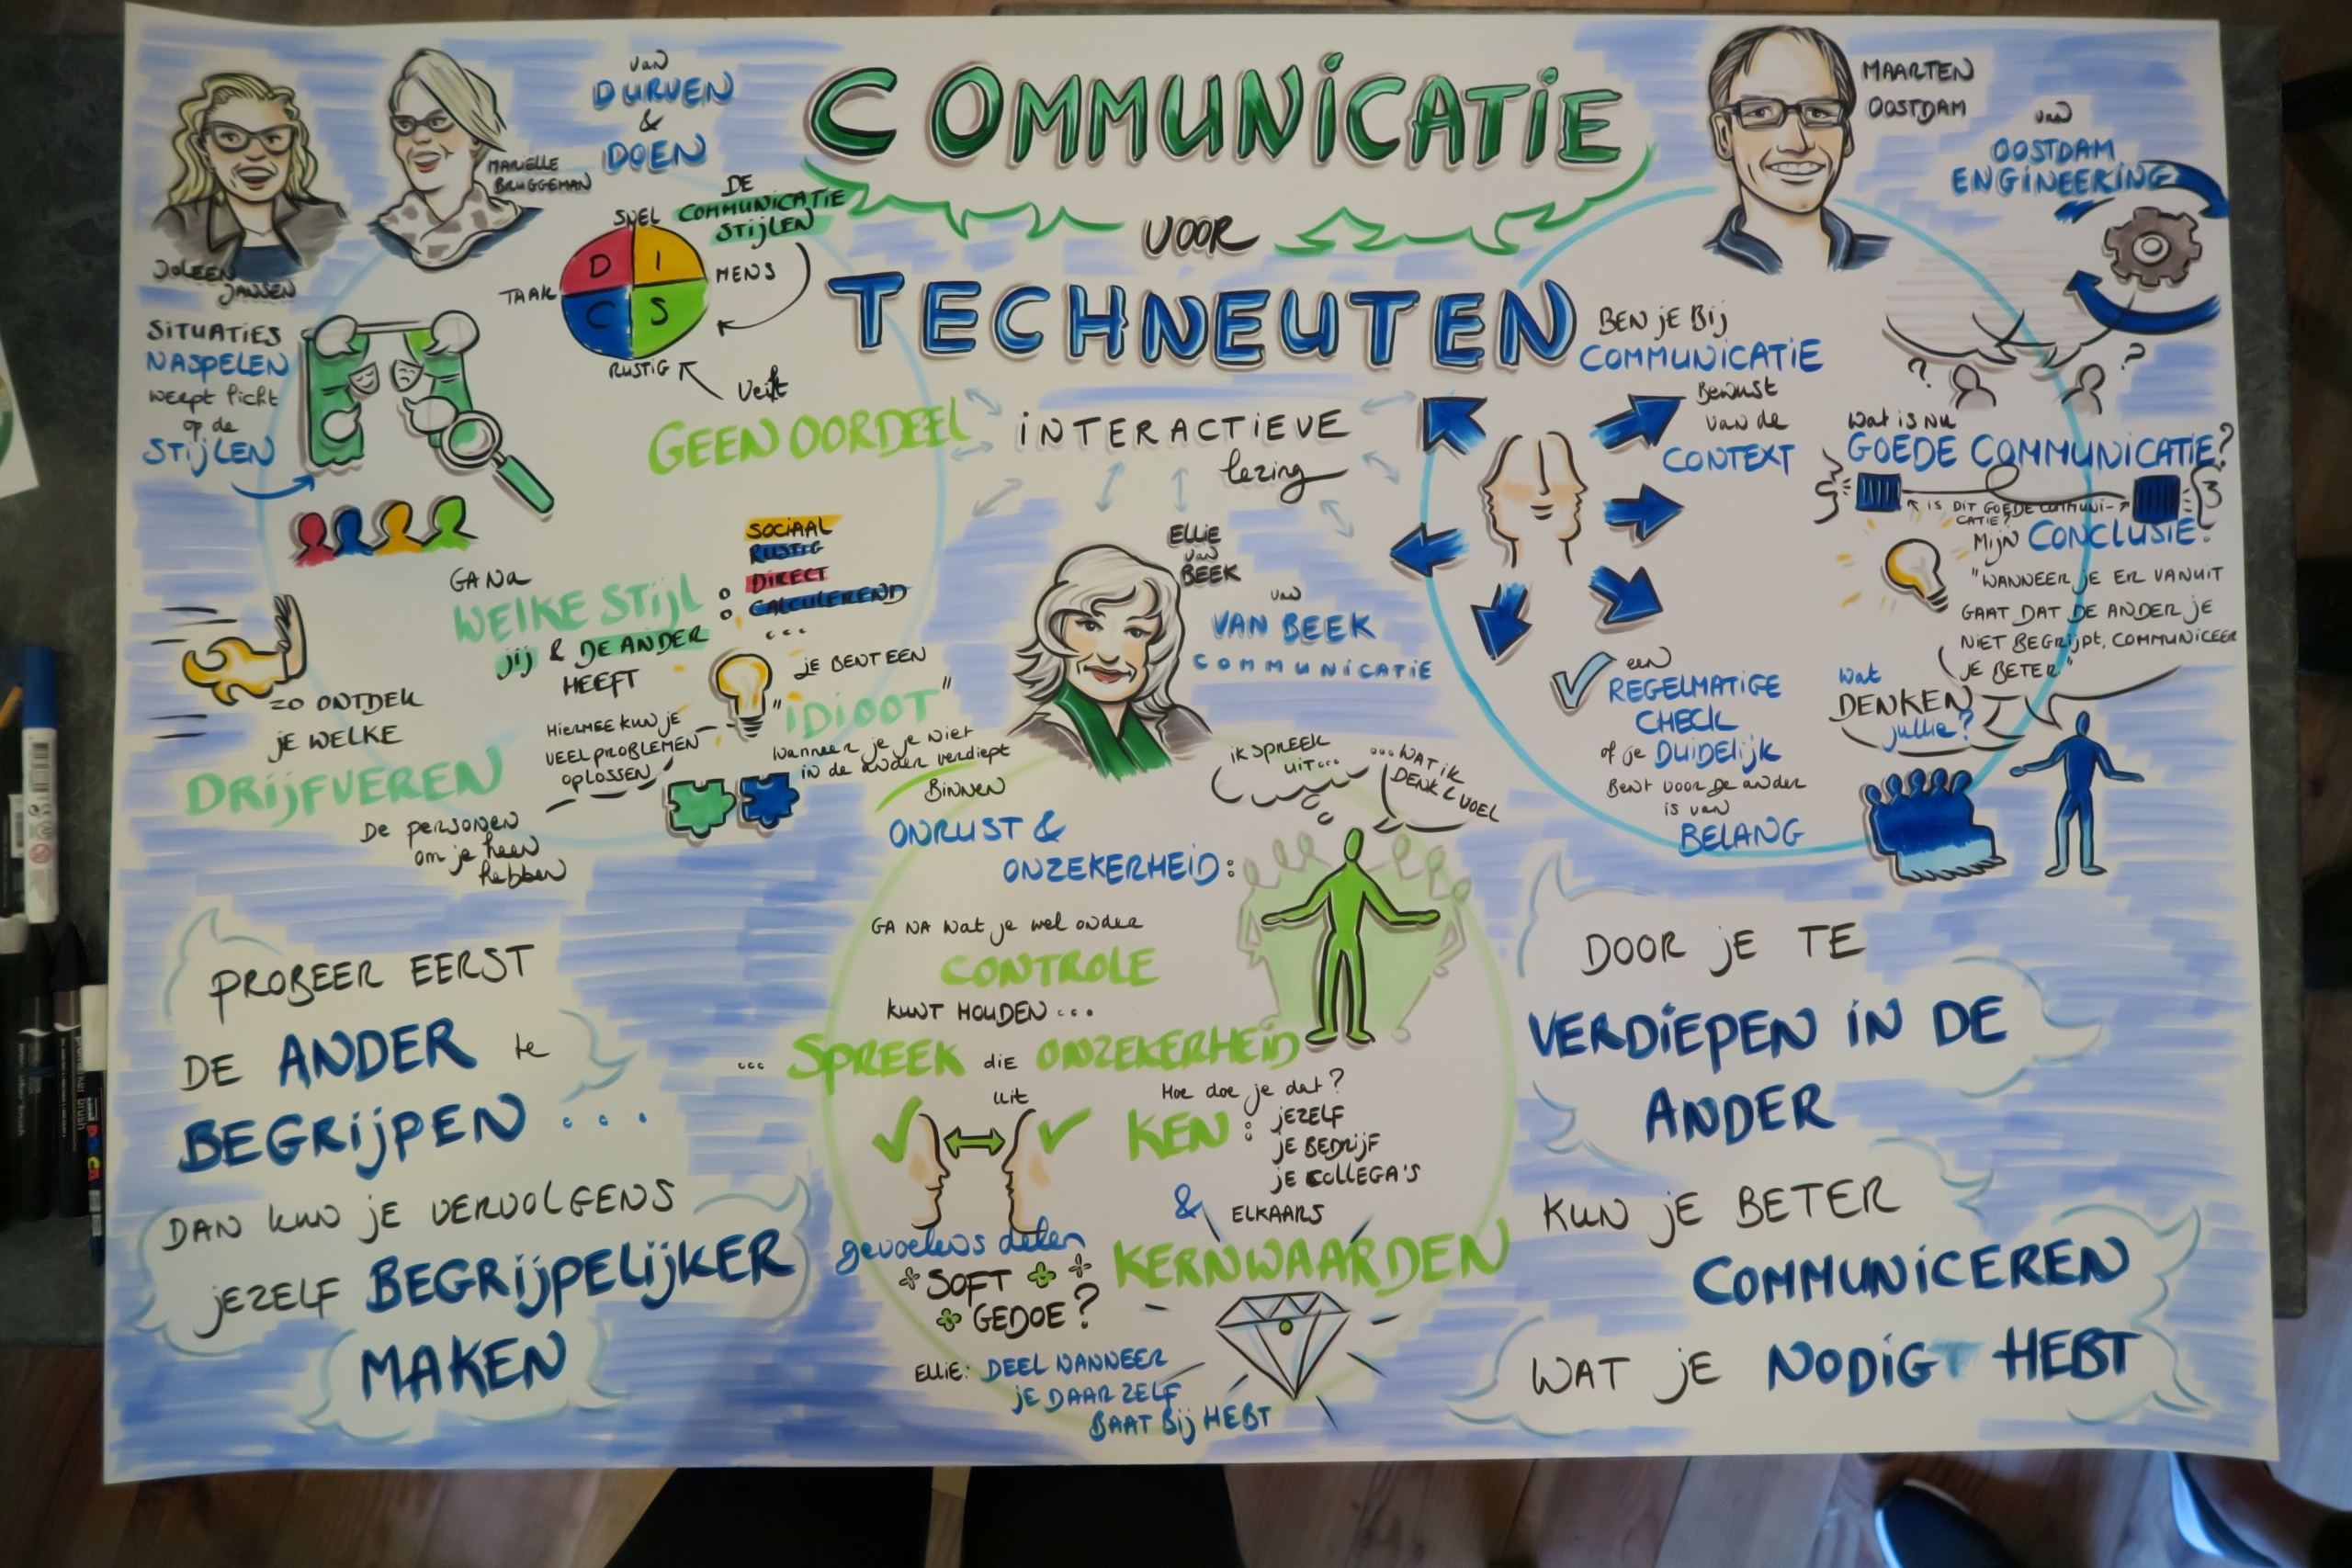 COMMUNICATIE
VOOR
TECHNEUTEN
INTERACTIEVE
lezing
JOLEEN
JANSEN
MARIËLLE
BRUGGEMAN
van
DURVEN
&
DOEN
DE
COMMUNICATIE
STIJLEN
SNEL
D I
C S
TAAK
MENS
RUSTIG
Veilt
GEEN OORDEEL
SITUATIES
NASPELEN
werpt licht
op de
STIJLEN
GA NA
WELKE STIJL
jij & DE ANDER
HEEFT
:
SOCIAAL
RUSTIG
DIRECT
CALCULEREND
...
ZO ONTDEK
JE WELKE
DRIJFVEREN
De personen
om je heen
hebben
HIERMEE KUN JE
VEEL PROBLEMEN
OPLOSSEN
JE BENT EEN
"IDIOOT"
wanneer je je niet
in de ander verdiept
PROBEER EERST
DE ANDER te
BEGRIJPEN ...
DAN kun JE VERVOLGENS
JEZELF BEGRIJPELIJKER
MAKEN
ELLIE
van
BEEK
van
VAN BEEK
COMMUNICATIE
BINNEN
ONRUST &
ONZEKERHEID:
IK SPREEK
UIT...
...WAT IK
DENK & VOEL
GA NA wat je wel onder
CONTROLE
KUNT HOUDEN ...
... SPREEK die ONZEKERHEID
uit
Hoe doe je dat?
KEN :
JEZELF
JE BEDRIJF
JE COLLEGA'S
& ELKAARS
KERNWAARDEN
gevoelens delen
SOFT
GEDOE?
ELLIE: DEEL WANNEER
JE DAAR ZELF
BAAT BIJ HEBT
MAARTEN
OOSTDAM
van
OOSTDAM
ENGINEERING
BEN JE BIJ
COMMUNICATIE
Bewust
van de
CONTEXT
? ?
Wat is nu
GOEDE COMMUNICATIE?
IS DIT GOEDE COMMUNI-
CATIE?
Mijn CONCLUSIE:
"WANNEER JE ER VANUIT
GAAT DAT DE ANDER JE
NIET BEGRIJPT, COMMUNICEER
JE BETER"
Wat
DENKEN
jullie?
een
REGELMATIGE
CHECK
of je DUIDELIJK
Bent voor de ander
is van
BELANG
DOOR JE TE
VERDIEPEN IN DE
ANDER
KUN JE BETER
COMMUNICEREN
WAT JE NODIGT HEBT